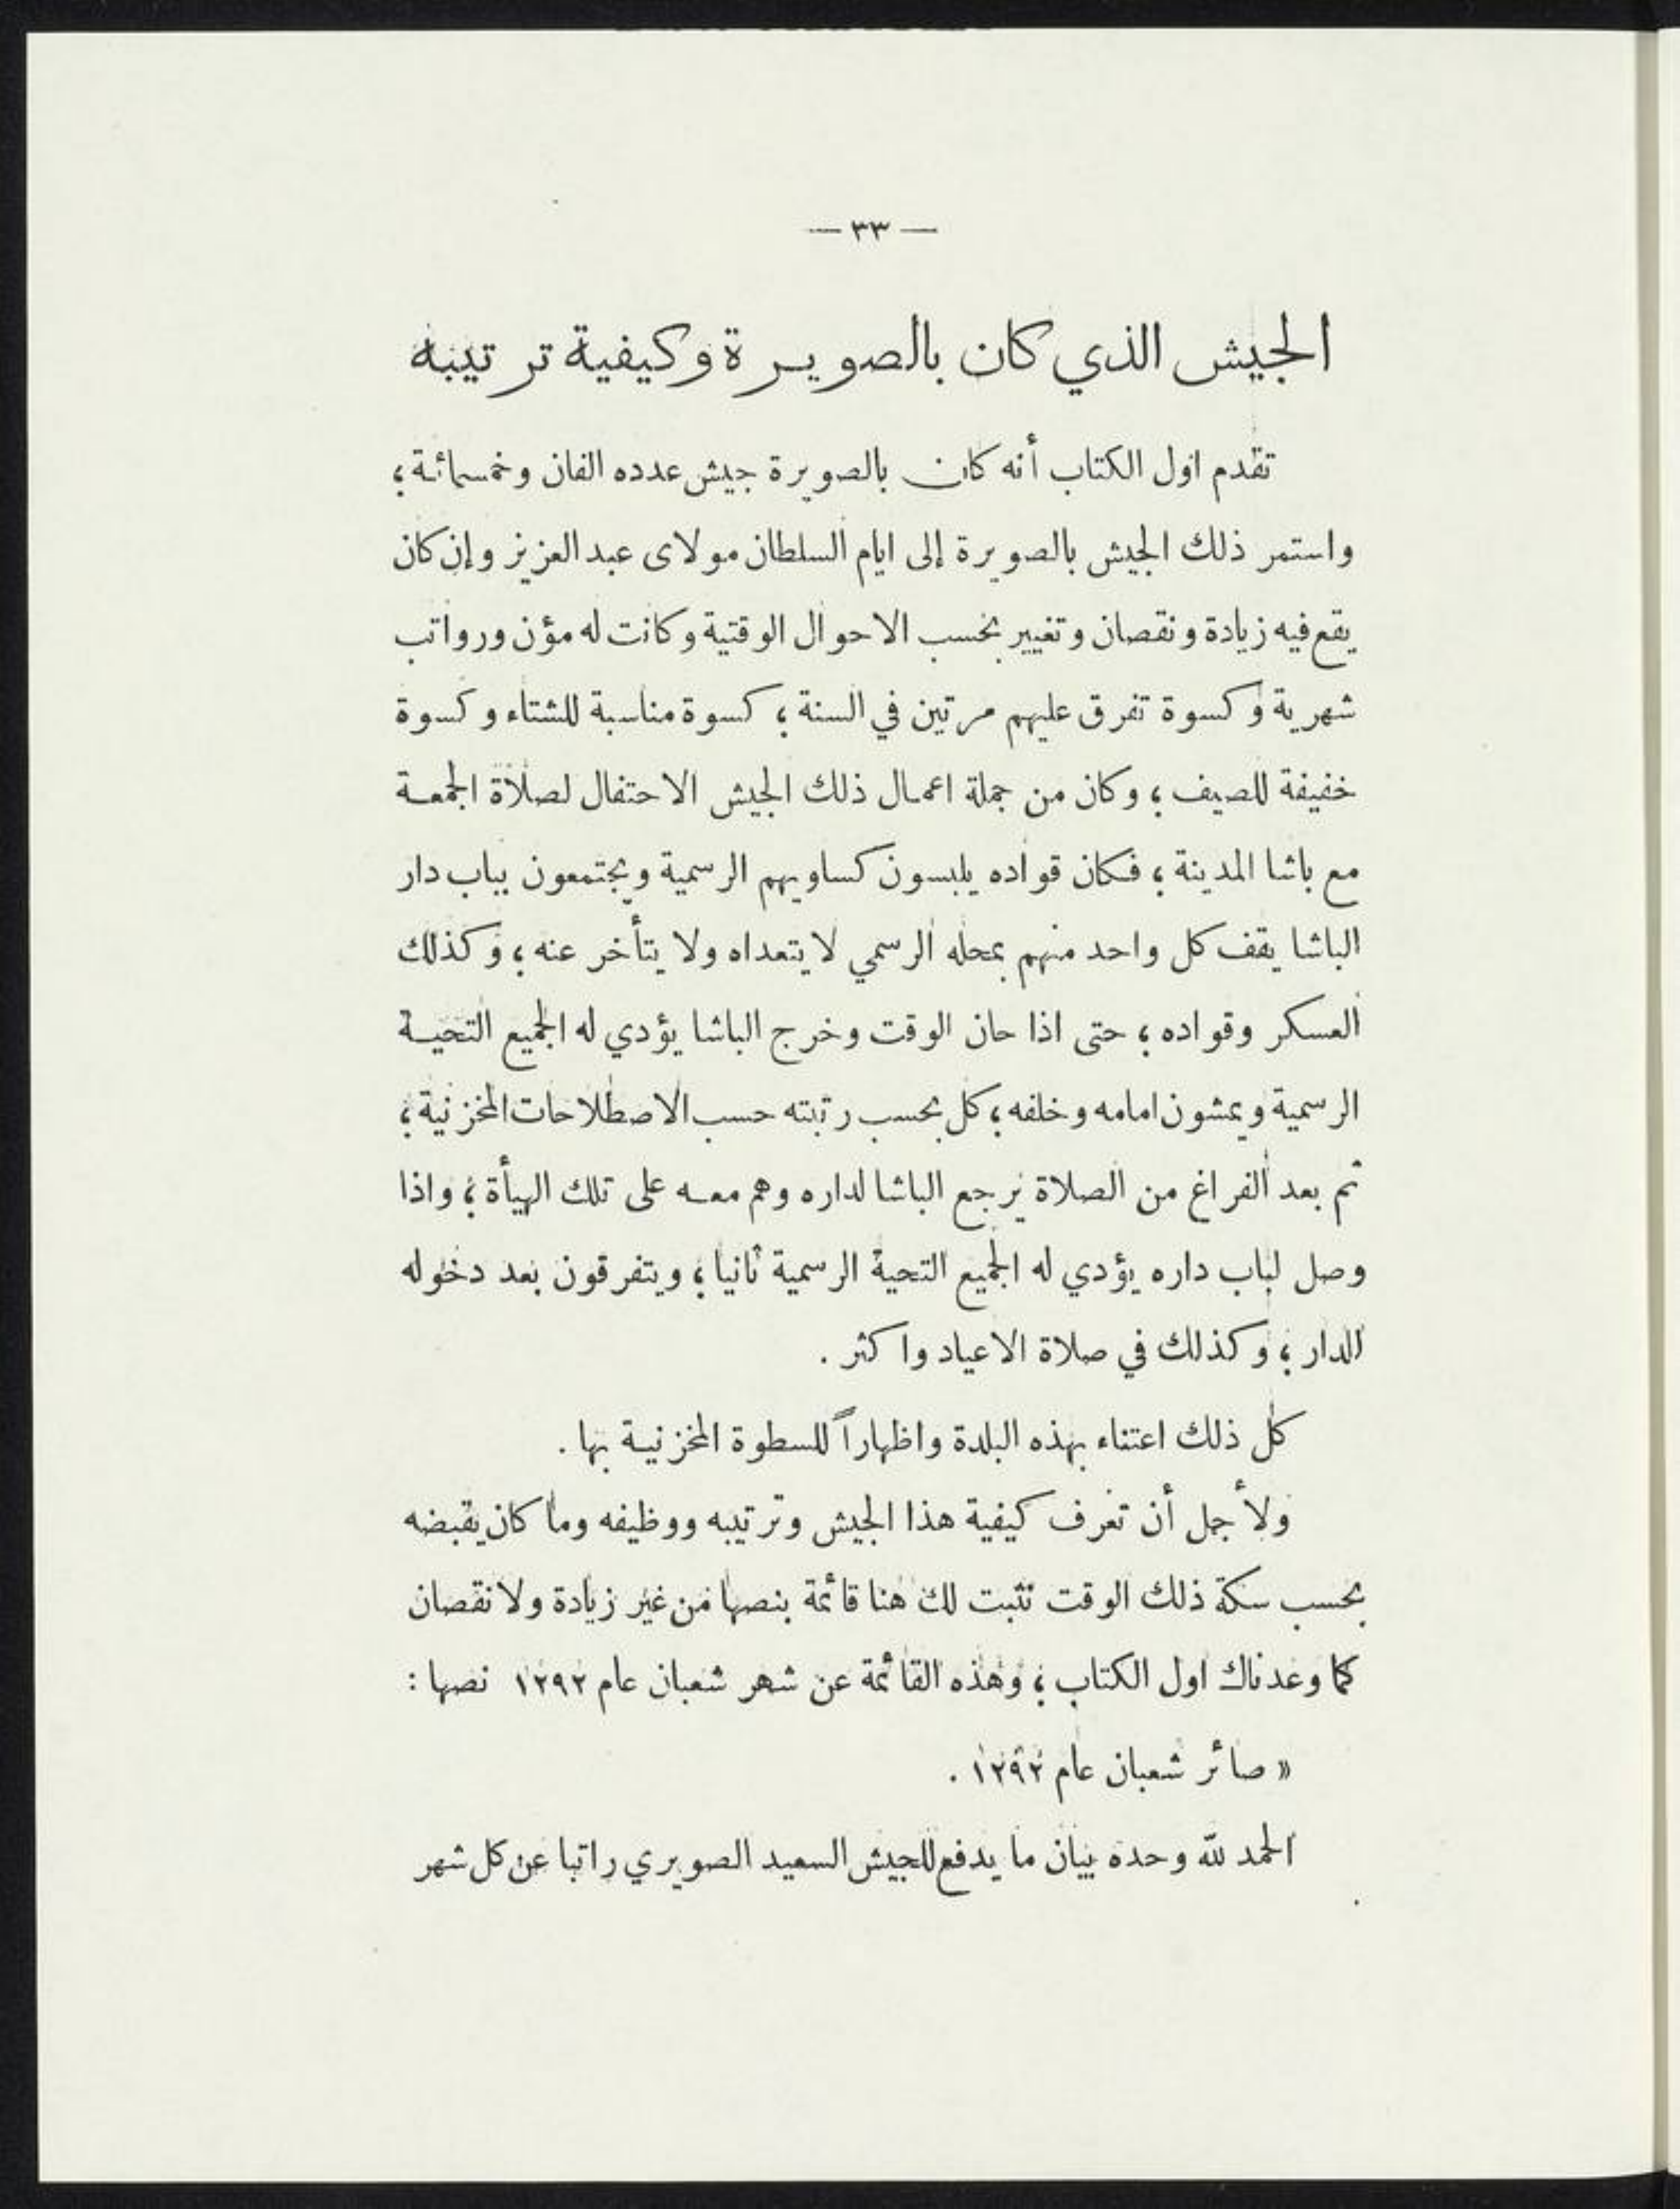 — ٣٣ —
الجيش الذي كان بالصويرة وكيفية ترتيبه
تقدم اول الكتاب أنه كان بالصويرة جيش عدده الفان وخمسمائة ؛
واستمر ذلك الجيش بالصويرة إلى ايام السلطان مولاى عبد العزيز وإن كان
يقع فيه زيادة ونقصان وتغيير بحسب الاحوال الوقتية وكانت له مؤن ورواتب
شهرية وكسوة تفرق عليهم مرتين في السنة ؛ كسوة مناسبة للشتاء وكسوة
خفيفة للصيف ؛ وكان من جملة اعمال ذلك الجيش الاحتفال لصلاة الجمعة
مع باشا المدينة ؛ فكان قواده يلبسون كساويهم الرسمية ويجتمعون بباب دار
الباشا يقف كل واحد منهم بمحله الرسمي لا يتعداه ولا يتأخر عنه ؛ وكذلك
العسكر وقواده ؛ حتى اذا حان الوقت وخرج الباشا يؤدي له الجميع التحية
الرسمية ويمشون امامه وخلفه ؛ كل بحسب رتبته حسب الاصطلاحات المخزنية ؛
ثم بعد الفراغ من الصلاة يرجع الباشا لداره وهم معه على تلك الهيأة ؛ واذا
وصل لباب داره يؤدي له الجميع التحية الرسمية ثانيا ؛ ويتفرقون بعد دخوله
الدار ؛ وكذلك في صلاة الاعياد واكثر .
كل ذلك اعتناء بهذه البلدة واظهاراً للسطوة المخزنية بها .
ولأجل أن تعرف كيفية هذا الجيش وترتيبه ووظيفه وما كان يقبضه
بحسب سكة ذلك الوقت نثبت لك هنا قائمة بنصها من غير زيادة ولا نقصان
كما وعدناك اول الكتاب ؛ وهذه القائمة عن شهر شعبان عام ١٢٩٢ نصها :
« صائر شعبان عام ١٢٩٢ .
الحمد لله وحده بيان ما يدفع للجيش السعيد الصويري راتبا عن كل شهر